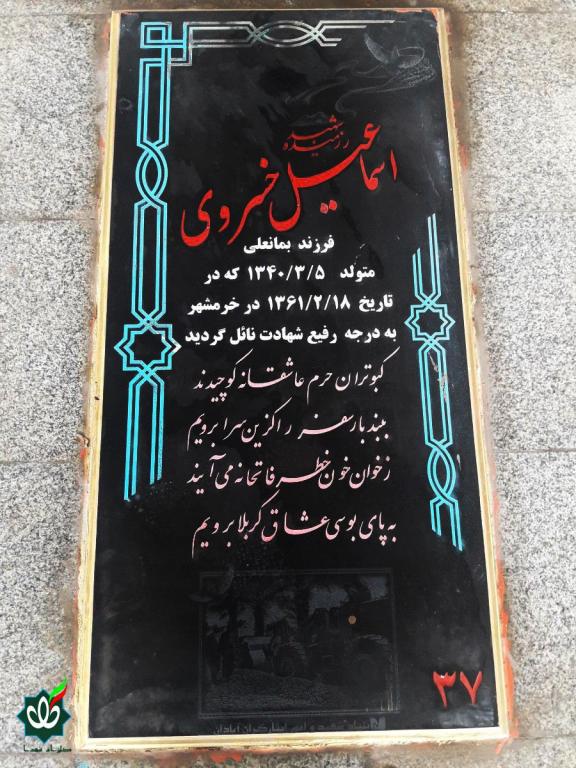 رزمنده شهید
اسماعیل خسروی
فرزند بمانعلی
متولد ۱۳۴۰/۳/۵ که در
تاریخ ۱۳۶۱/۲/۱۸ در خرمشهر
به درجه رفیع شهادت نائل گردید
کبوتران حرم عاشقانه کوچیدند
ببند بار سفر را کزین سرا برویم
ز خوان خون خطر فاتحانه می آیند
به پای بوسی عشاق کربلا برویم
۳۷